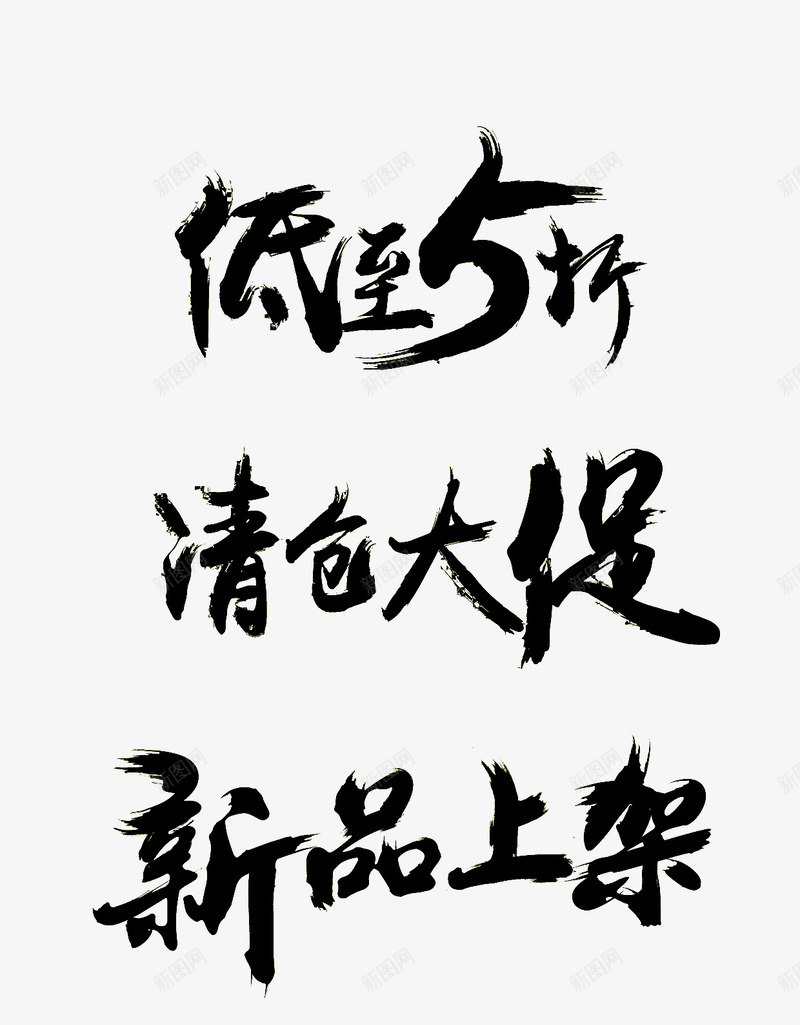 低至5折
清仓大促
新品上架